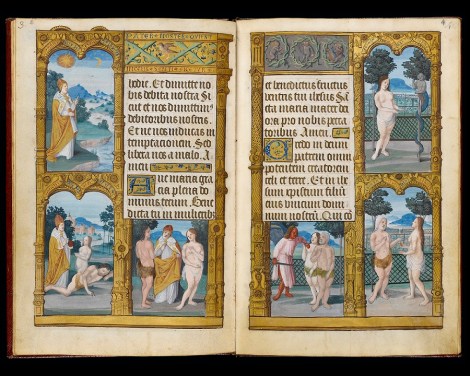 PATER NOSTER QVI
hodie. Et dimitte no
bis debita nostra Si
cut et nos dimittim'
debitoribus nostris.
Et ne nos inducas in
temptacionem. Sed
libera nos a malo. A
men
Aue maria gra
cia plena do
minus tecum. Bene
dicta tu in mulierib'
et benedictus fructus
ventris tui iesus Sā
cta maria mater de
ora pro nobis pecca
toribus Amen.
Credo in deum
patrem omni
potentem creatorem
celi et terre. Et in ie
sum christum filiū
eius unicum domi
num nostrū. Qui cō